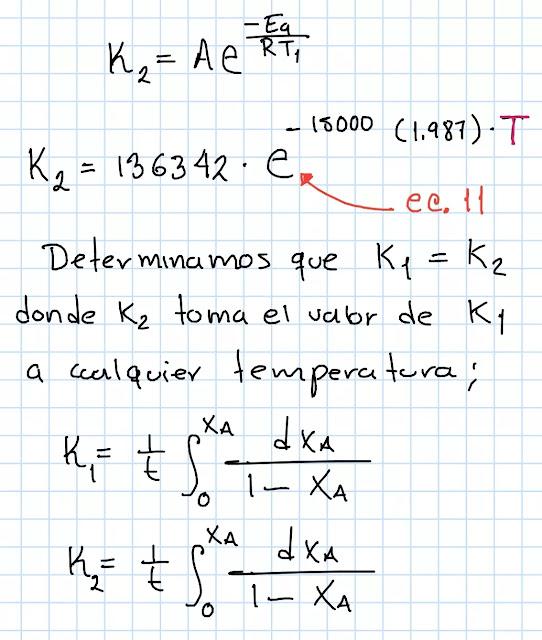 K₂ = A e^(-Ea/RT₁)
K₂ = 136342 · e^(-15000 (1.987) · T)
ec. 11
Determinamos que K₁ = K₂
donde K₂ toma el valor de K₁
a cualquier temperatura;
K₁ = 1/t ∫₀^(XA) dXA/(1 - XA)
K₂ = 1/t ∫₀^(XA) dXA/(1 - XA)